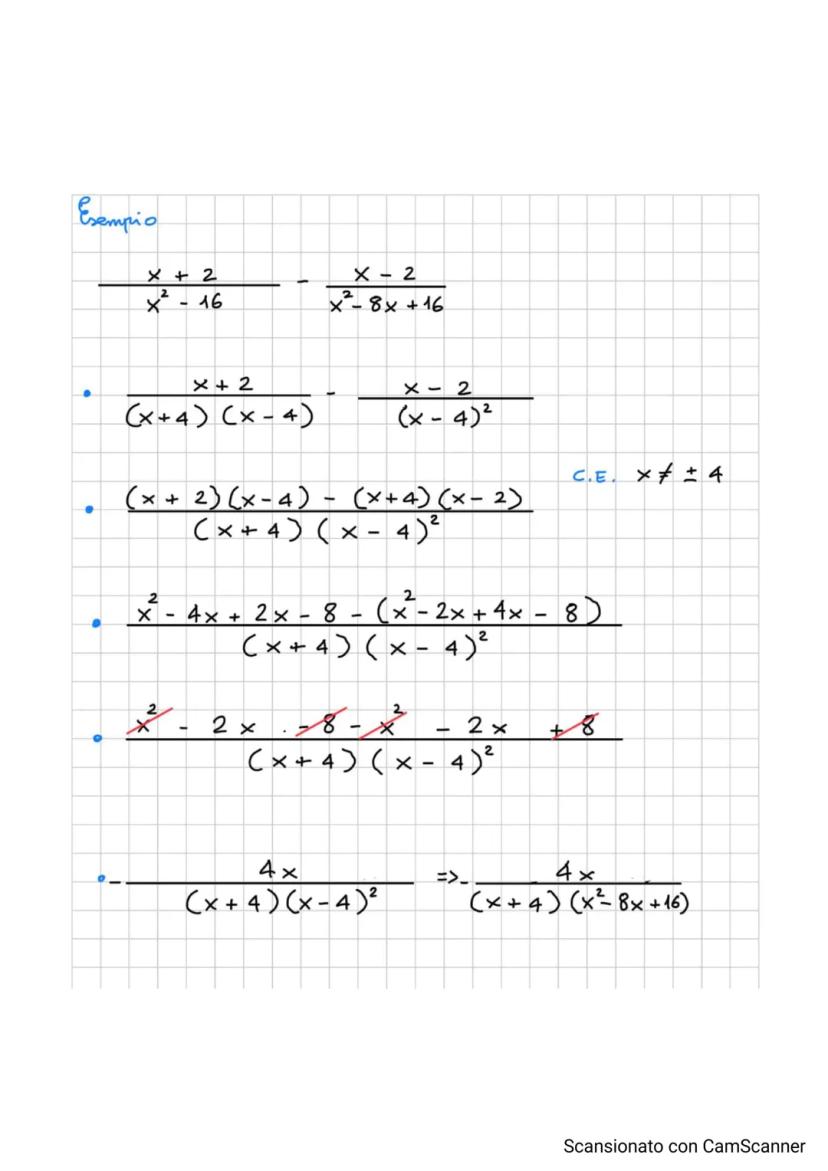 Esempio
x + 2 / x² - 16 - x - 2 / x² - 8x + 16
• x + 2 / (x + 4) (x - 4) - x - 2 / (x - 4)²
C.E. x ≠ ± 4
• (x + 2)(x - 4) - (x + 4)(x - 2) / (x + 4) (x - 4)²
• x² - 4x + 2x - 8 - (x² - 2x + 4x - 8) / (x + 4) (x - 4)²
• x² - 2x - 8 - x² - 2x + 8 / (x + 4) (x - 4)²
• - 4x / (x + 4)(x - 4)² => - 4x / (x + 4) (x² - 8x + 16)
Scansionato con CamScanner